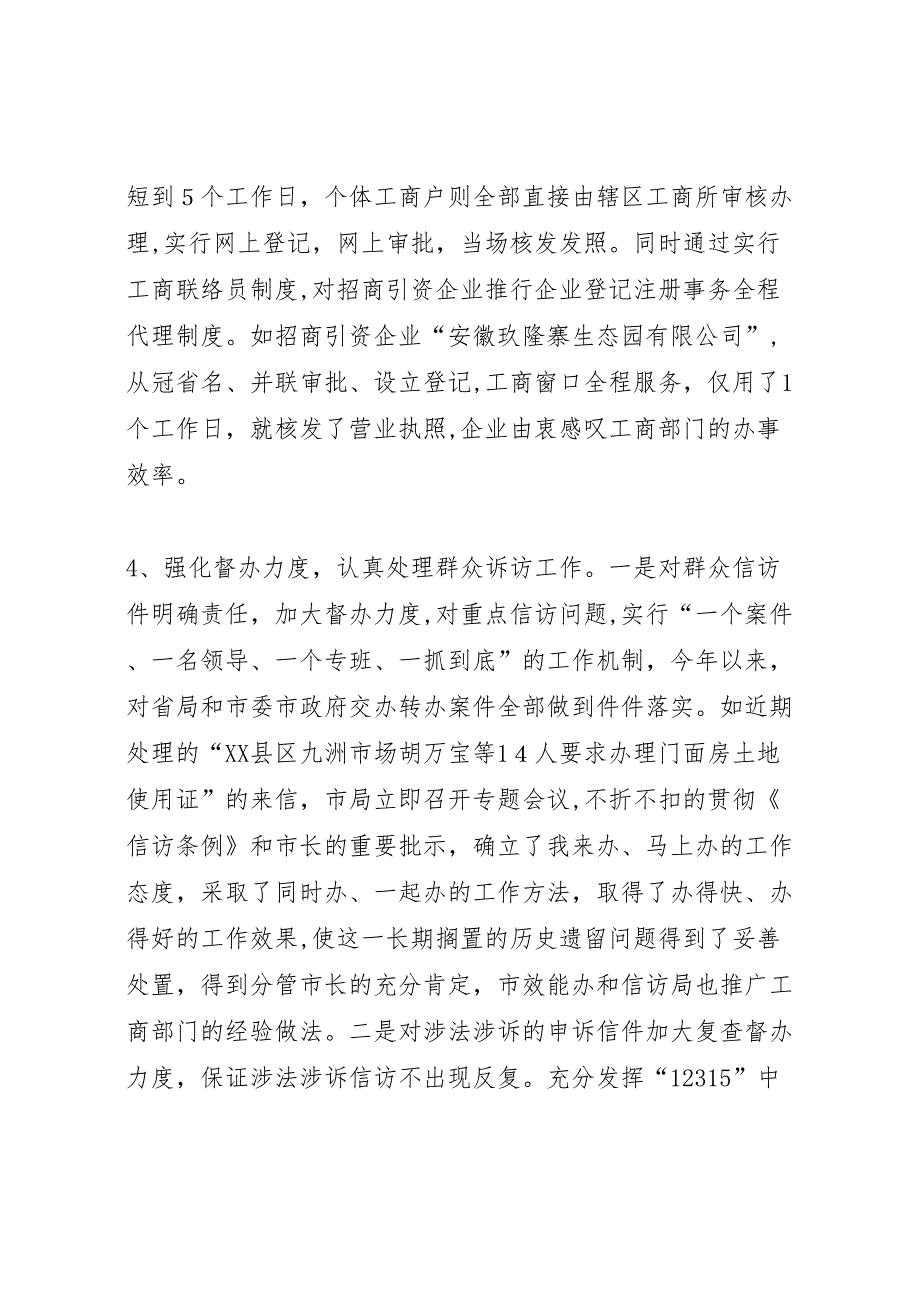 短到５个工作日，个体工商户则全部直接由辖区工商所审核办
理,实行网上登记，网上审批，当场核发发照。同时通过实行
工商联络员制度,对招商引资企业推行企业登记注册事务全程
代理制度。如招商引资企业“安徽玖隆寨生态园有限公司”,
从冠省名、并联审批、设立登记,工商窗口全程服务，仅用了1
个工作日，就核发了营业执照,企业由衷感叹工商部门的办事
效率。
4、强化督办力度，认真处理群众诉访工作。一是对群众信访
件明确责任，加大督办力度,对重点信访问题,实行“一个案件
、一名领导、一个专班、一抓到底”的工作机制，今年以来，
对省局和市委市政府交办转办案件全部做到件件落实。如近期
处理的“XX县区九洲市场胡万宝等1４人要求办理门面房土地
使用证”的来信，市局立即召开专题会议,不折不扣的贯彻《
信访条例》和市长的重要批示，确立了我来办、马上办的工作
态度，采取了同时办、一起办的工作方法，取得了办得快、办
得好的工作效果,使这一长期搁置的历史遗留问题得到了妥善
处置，得到分管市长的充分肯定，市效能办和信访局也推广工
商部门的经验做法。二是对涉法涉诉的申诉信件加大复查督办
力度，保证涉法涉诉信访不出现反复。充分发挥“12315”中